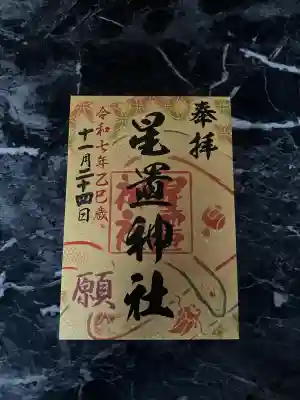 奉拝
星置神社
令和七年乙巳歳、
十一月二十四日
願